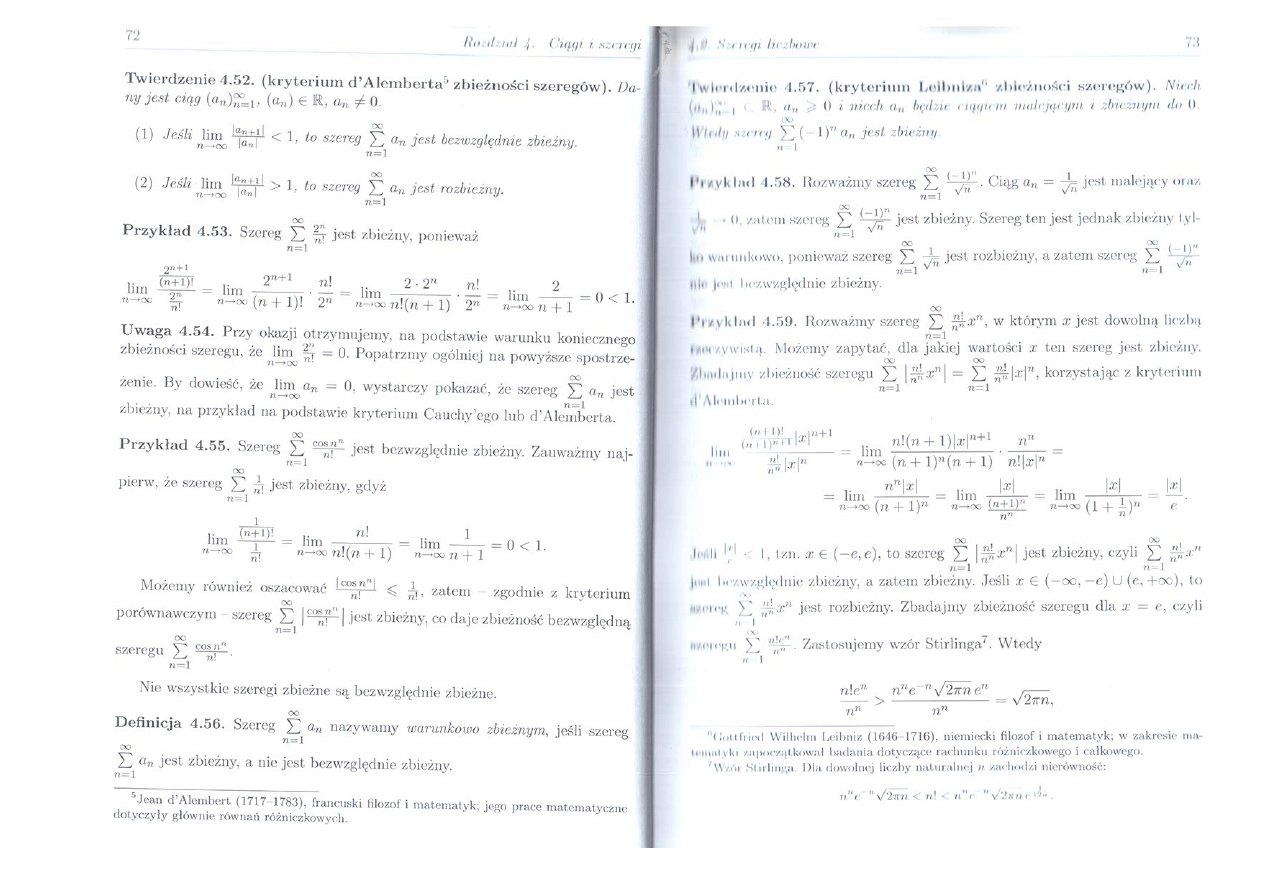 72
Rozdział 4. Ciągi i szeregi
Twierdzenie 4.52. (kryterium d'Alemberta⁵ zbieżności szeregów). Da-
ny jest ciąg (aₙ)_{n=1}^∞, (aₙ) ∈ ℝ, aₙ ≠ 0.
(1) Jeśli lim_{n→∞} |aₙ₊₁|/|aₙ| < 1, to szereg ∑_{n=1}^∞ aₙ jest bezwzględnie zbieżny.
(2) Jeśli lim_{n→∞} |aₙ₊₁|/|aₙ| > 1, to szereg ∑_{n=1}^∞ aₙ jest rozbieżny.
Przykład 4.53. Szereg ∑_{n=1}^∞ 2ⁿ/n! jest zbieżny, ponieważ
lim_{n→∞} (2ⁿ⁺¹/(n+1)!)/(2ⁿ/n!) = lim_{n→∞} 2ⁿ⁺¹/(n + 1)! · n!/2ⁿ = lim_{n→∞} 2 · 2ⁿ/(n!(n + 1)) · n!/2ⁿ = lim_{n→∞} 2/(n + 1) = 0 < 1.
Uwaga 4.54. Przy okazji otrzymujemy, na podstawie warunku koniecznego
zbieżności szeregu, że lim_{n→∞} 2ⁿ/n! = 0. Popatrzmy ogólniej na powyższe spostrze-
żenie. By dowieść, że lim_{n→∞} aₙ = 0, wystarczy pokazać, że szereg ∑_{n=1}^∞ aₙ jest
zbieżny, na przykład na podstawie kryterium Cauchy'ego lub d'Alemberta.
Przykład 4.55. Szereg ∑_{n=1}^∞ cos nⁿ/n! jest bezwzględnie zbieżny. Zauważmy naj-
pierw, że szereg ∑_{n=1}^∞ 1/n! jest zbieżny, gdyż
lim_{n→∞} (1/(n+1)!)/(1/n!) = lim_{n→∞} n!/(n!(n + 1)) = lim_{n→∞} 1/(n + 1) = 0 < 1.
Możemy również oszacować |cos nⁿ|/n! ⩽ 1/n!, zatem – zgodnie z kryterium
porównawczym – szereg ∑_{n=1}^∞ |cos nⁿ/n!| jest zbieżny, co daje zbieżność bezwzględną
szeregu ∑_{n=1}^∞ cos nⁿ/n!.
Nie wszystkie szeregi zbieżne są bezwzględnie zbieżne.
Definicja 4.56. Szereg ∑_{n=1}^∞ aₙ nazywamy warunkowo zbieżnym, jeśli szereg
∑_{n=1}^∞ aₙ jest zbieżny, a nie jest bezwzględnie zbieżny.
⁵Jean d'Alembert (1717–1783), francuski filozof i matematyk; jego prace matematyczne
dotyczyły głównie równań różniczkowych.
Szeregi liczbowe
73
Twierdzenie 4.57. (kryterium Leibniza⁶ zbieżności szeregów). Niech
(aₙ)_{n=1}^∞ ⊂ ℝ, aₙ ⩾ 0 i niech aₙ będzie ciągiem malejącym i zbieżnym do 0.
Wtedy szereg ∑_{n=1}^∞ (−1)ⁿ aₙ jest zbieżny.
Przykład 4.58. Rozważmy szereg ∑_{n=1}^∞ (−1)ⁿ/√n. Ciąg aₙ = 1/√n jest malejący oraz
1/√n → 0, zatem szereg ∑_{n=1}^∞ (−1)ⁿ/√n jest zbieżny. Szereg ten jest jednak zbieżny tyl-
ko warunkowo, ponieważ szereg ∑_{n=1}^∞ 1/√n jest rozbieżny, a zatem szereg ∑_{n=1}^∞ (−1)ⁿ/√n
nie jest bezwzględnie zbieżny.
Przykład 4.59. Rozważmy szereg ∑_{n=1}^∞ n!/nⁿ xⁿ, w którym x jest dowolną liczbą
rzeczywistą. Możemy zapytać, dla jakiej wartości x ten szereg jest zbieżny.
Zbadajmy zbieżność szeregu ∑_{n=1}^∞ |n!/nⁿ xⁿ| = ∑_{n=1}^∞ n!/nⁿ |x|ⁿ, korzystając z kryterium
d'Alemberta.
lim_{n→∞} ((n+1)!/(n+1)ⁿ⁺¹ |x|ⁿ⁺¹)/(n!/nⁿ |x|ⁿ) = lim_{n→∞} n!(n + 1)|x|ⁿ⁺¹/((n + 1)ⁿ(n + 1)) · nⁿ/(n!|x|ⁿ) =
= lim_{n→∞} nⁿ|x|/(n + 1)ⁿ = lim_{n→∞} |x|/((n+1)ⁿ/nⁿ) = lim_{n→∞} |x|/(1 + 1/n)ⁿ = |x|/e.
Jeśli |x|/e < 1, tzn. x ∈ (−e, e), to szereg ∑_{n=1}^∞ |n!/nⁿ xⁿ| jest zbieżny, czyli ∑_{n=1}^∞ n!/nⁿ xⁿ
jest bezwzględnie zbieżny, a zatem zbieżny. Jeśli x ∈ (−∞, −e) ∪ (e, +∞), to
szereg ∑_{n=1}^∞ n!/nⁿ xⁿ jest rozbieżny. Zbadajmy zbieżność szeregu dla x = e, czyli
szeregu ∑_{n=1}^∞ n!eⁿ/nⁿ. Zastosujemy wzór Stirlinga⁷. Wtedy
n!eⁿ/nⁿ > nⁿe⁻ⁿ√(2πn) eⁿ/nⁿ = √(2πn),
⁶Gottfried Wilhelm Leibniz (1646–1716), niemiecki filozof i matematyk; w zakresie ma-
tematyki zapoczątkował badania dotyczące rachunku różniczkowego i całkowego.
⁷Wzór Stirlinga. Dla dowolnej liczby naturalnej n zachodzi nierówność:
nⁿe⁻ⁿ√(2πn) < n! < nⁿe⁻ⁿ√(2πn)